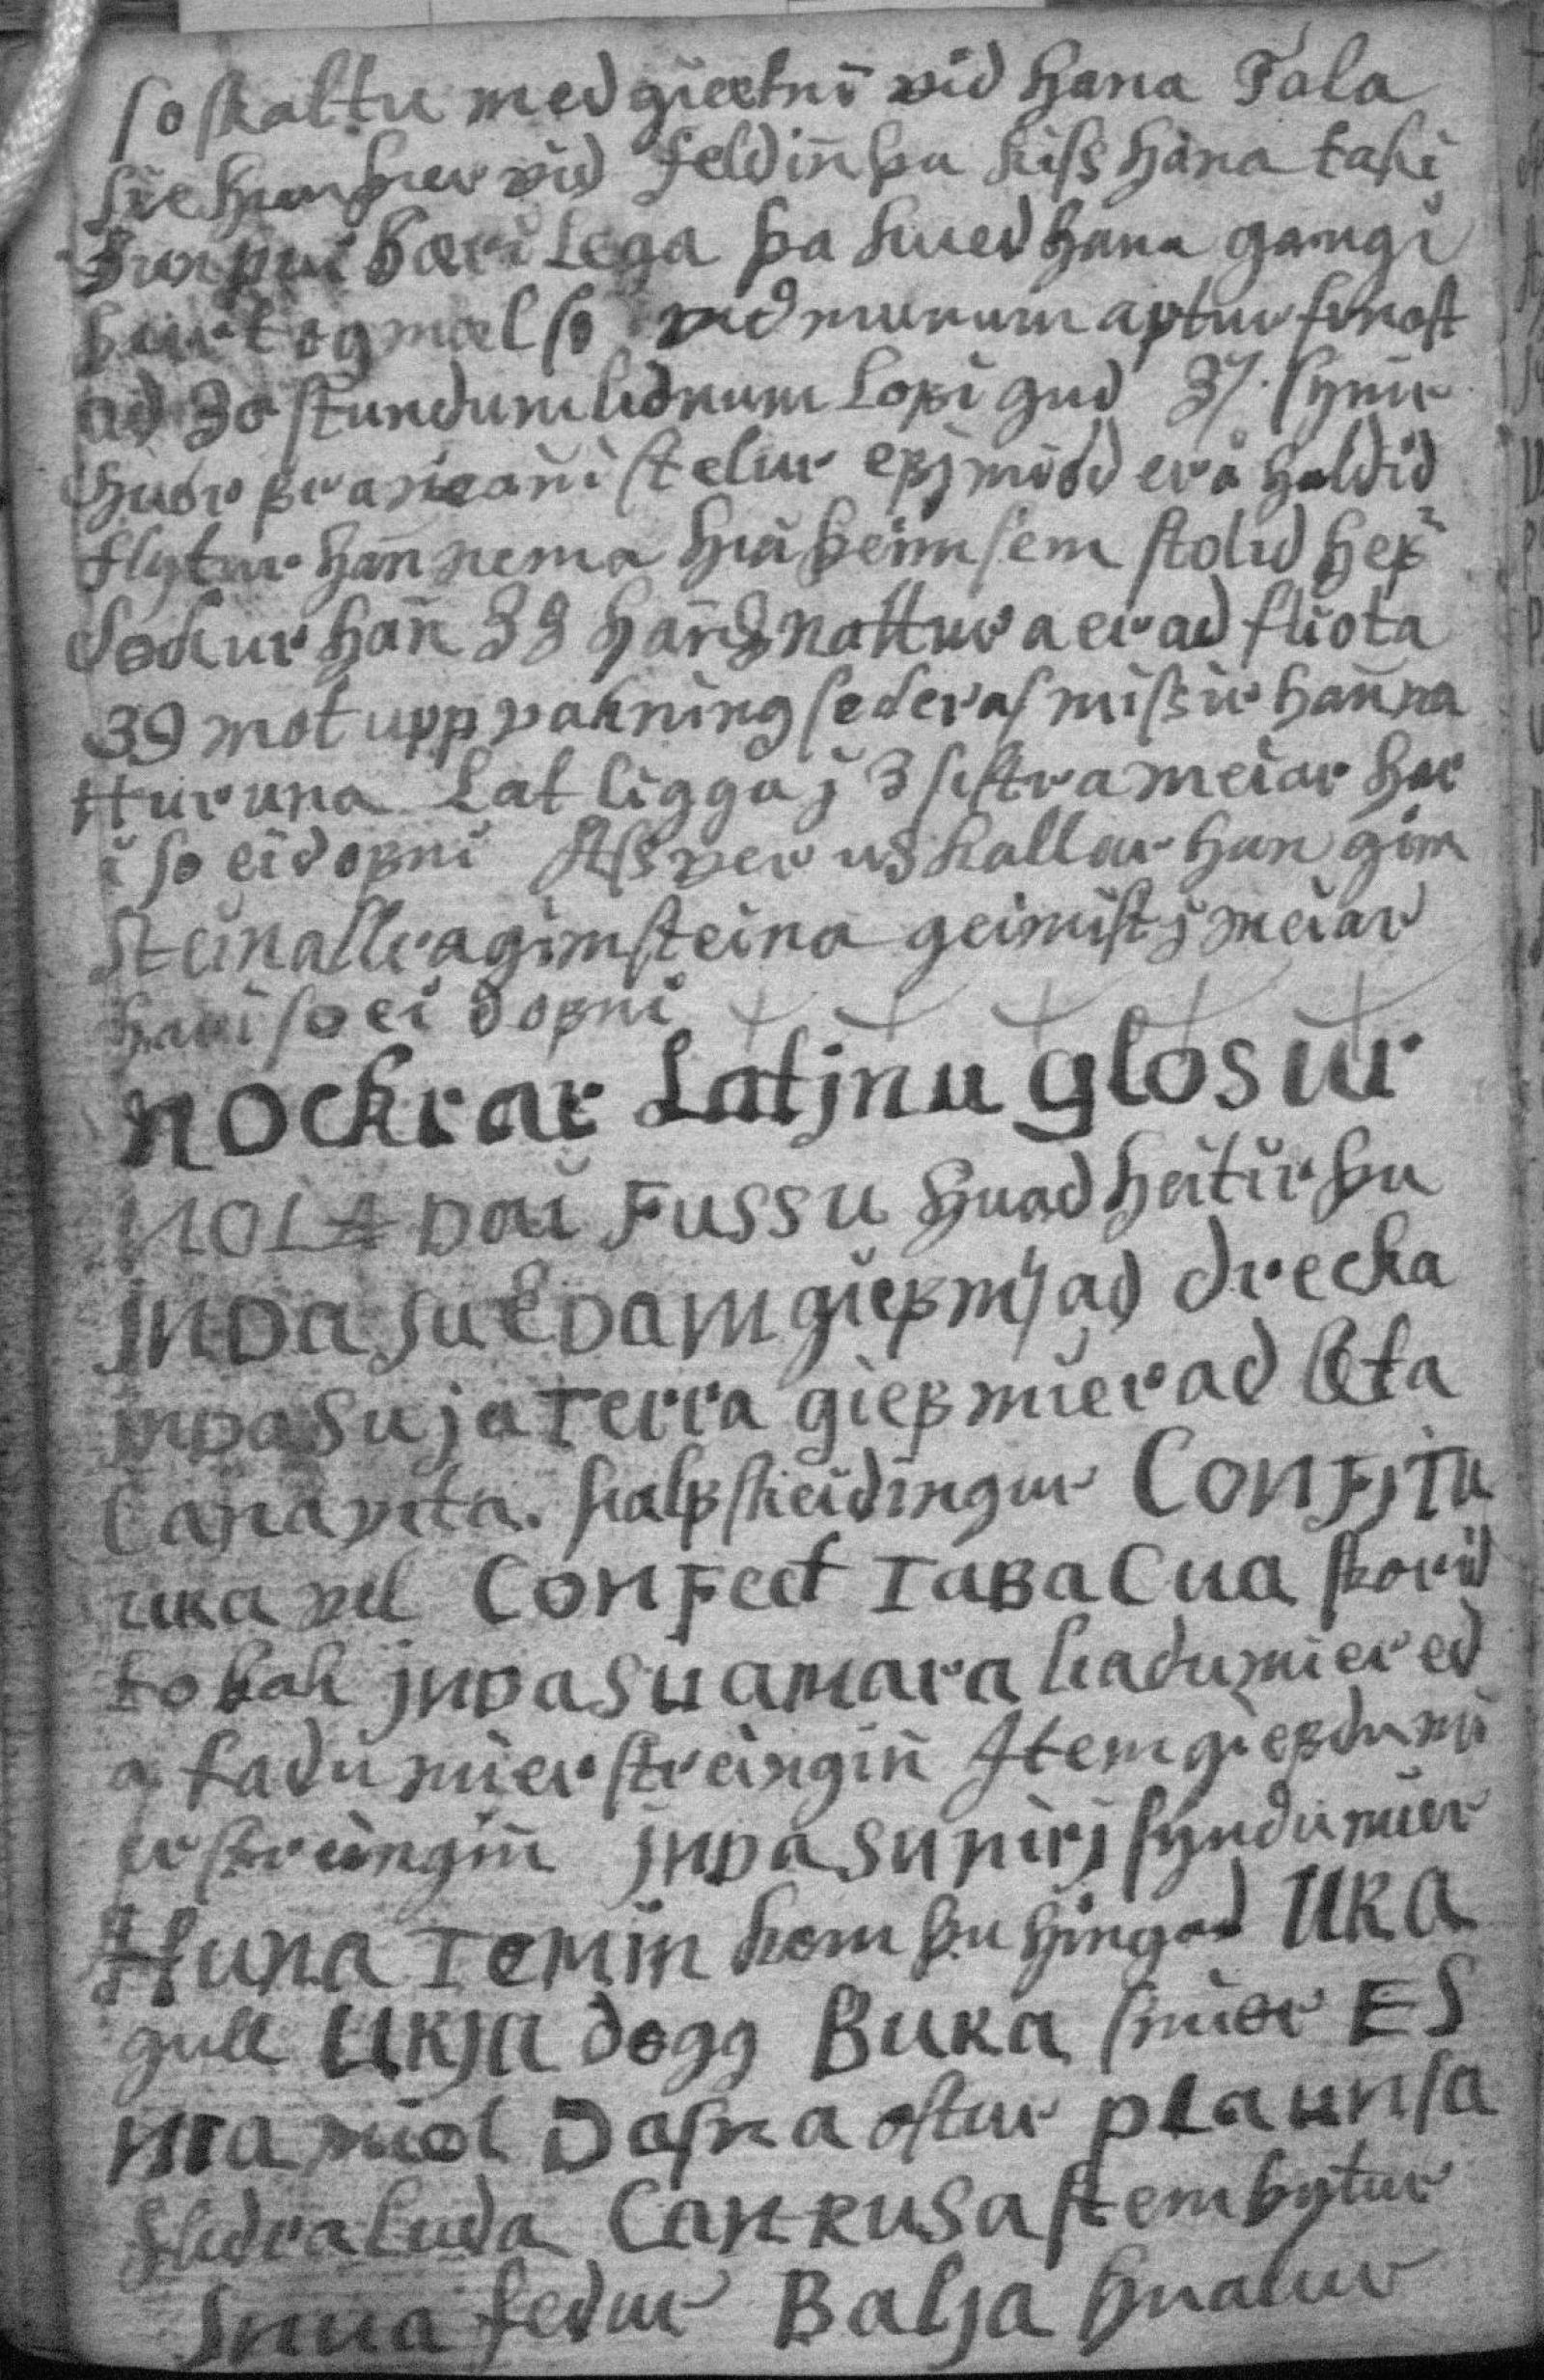 so skaltu med giætni vid hana Tala
sie hun þier vid feldin þa kiss hana taki
hun þui kæri Lega þa kued hana gangi
burt og mæl so vid munum aptur finast
ad 30 stundum lidnum Lofi gud 37. synir
huor fra meani stelur efj miod er á haldid
flytur han nema hia þeim sem stolid hef
sockur han 38 hans nattur a er ad fliota
39 mot uppvakning sedersas missir hanna
tturuna Lat liggia j 3 sistra meiar har
i so eid ofni Assver us kallar han gim
stein allra gimsteina geimist j meiar
hari so ei dofni
nockrar Latjnu glosur
NOLA Dai Fussu huad heitir þu
jnDa su EDam gief mj ad drecka
jnDa su ja Terra gief mier ad lita
Canavita. kalfskeidingur Confitu
ura vel Confect Tabacua skorid
tobak jnDa su amara liadu mier ed
a fadu mier streingin Item giefdu mi
er streingin jnDa su nirj syndu mier
Huna Temin kom þu hingad URA
gull URJA dogg BURA smior ES
nia miol Dasna ostur plaunsa
sludra luda CanRusa stembytur
Snua fedur Balja hualur